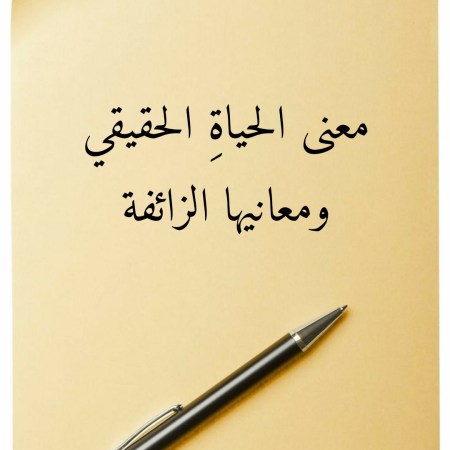 معنى الحياةِ الحقيقي
ومعانيها الزائفة